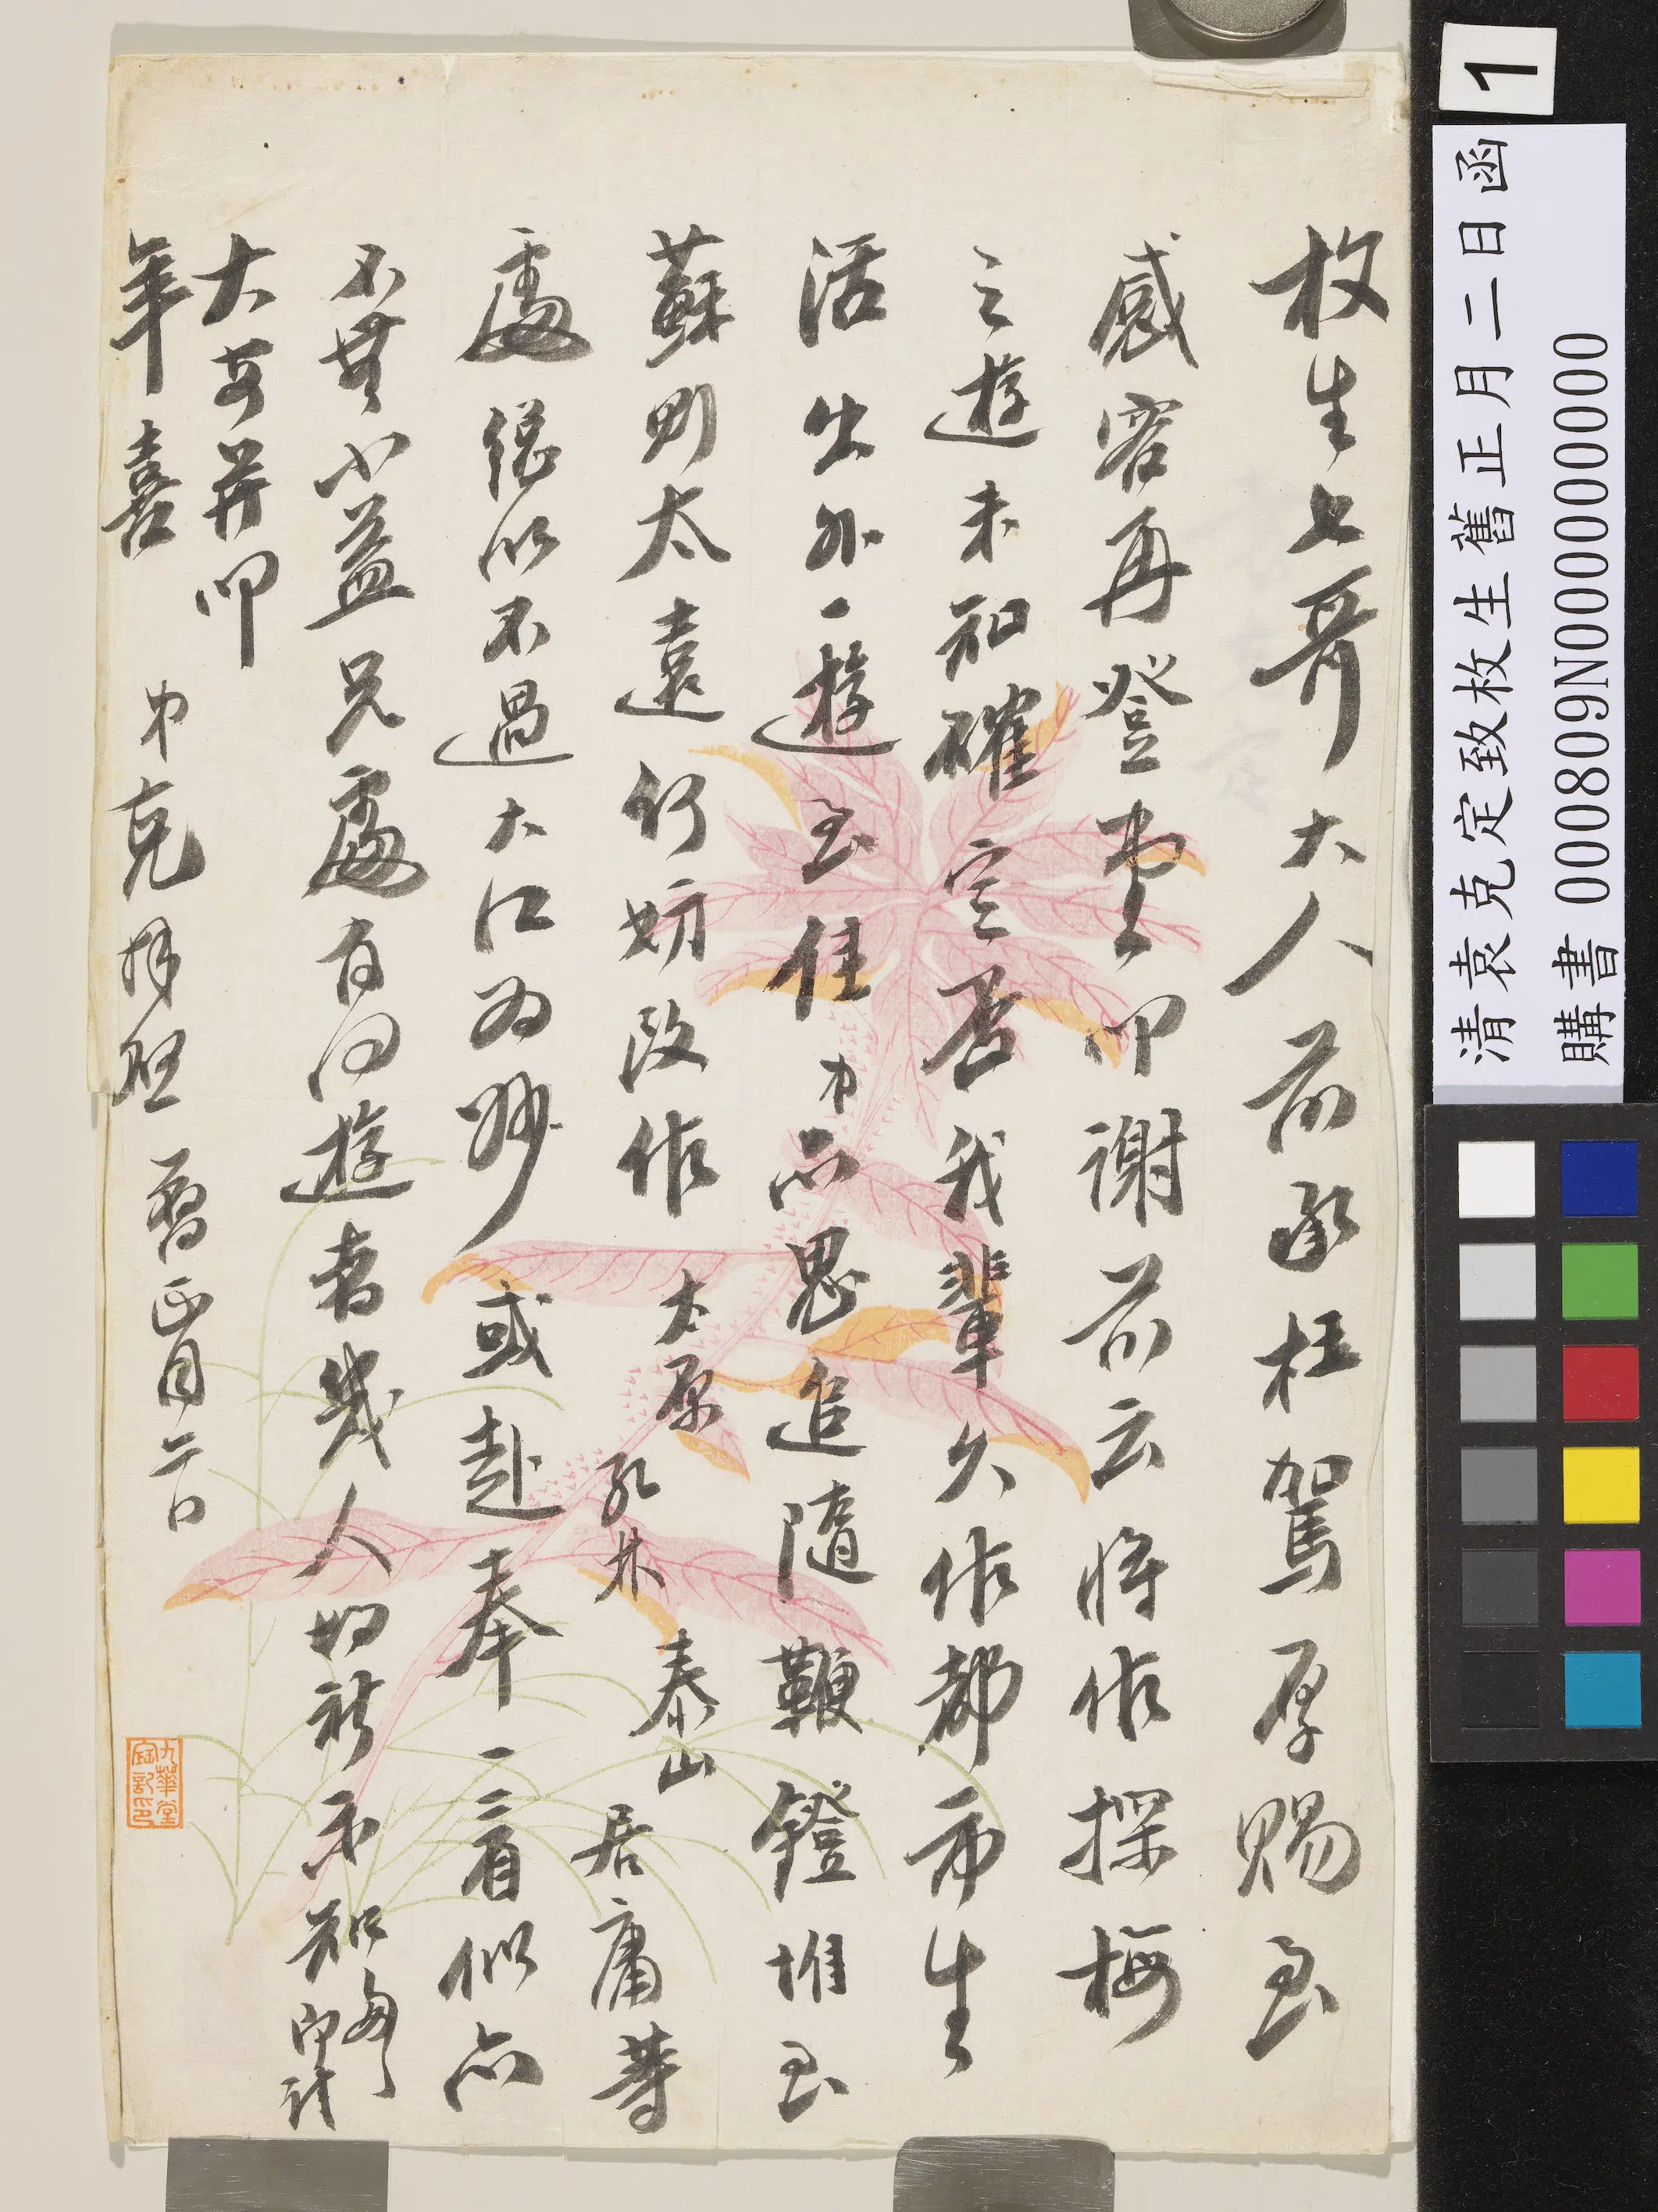 枚生七哥大人前承枉駕厚賜至
感容再登堂叩謝前云將作探梅
之遊未知確定否我輩久作都市生
活出外一遊至佳弟亦思追隨鞭鐙惟至
蘇則太遠何妨改作太原孔林泰山居庸等
處總以不過大江為妙或赴奉一看似亦
不無小益兄處有同遊者幾人如祈示知
大安并叩
年喜
弟克拜啓 舊正月二日
九華堂寶記印
1
清袁克定致枚生舊正月二日函
購書 000809N000000000